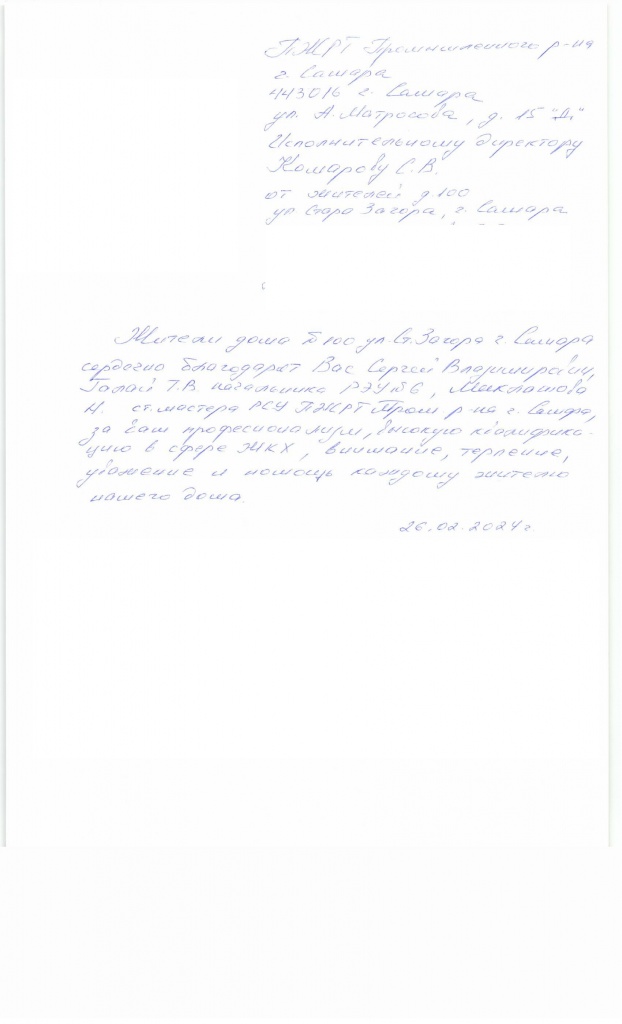 ПЖРТ Промышленного р-на
г. Самара
443016 г. Самара
ул. А. Матросова, д. 15 "Д"
Исполнительному директору
Комарову С.В.
от жителей д 100
ул Стара Загора, г. Самара
Жители дома №100 ул. Ст. Загора г. Самара
сердечно благодарят Вас Сергей Владимирович,
Галай Т.В начальника РЭУ №6, Миклашова
Н. ст. мастера РСУ ПЖРТ Пром р-на г. Самара,
за Ваш професионализм, высокую квалифика-
цию в сфере ЖКХ, внимание, терпение,
уважение и помощь каждому жителю
нашего дома.
26.02.2024 г